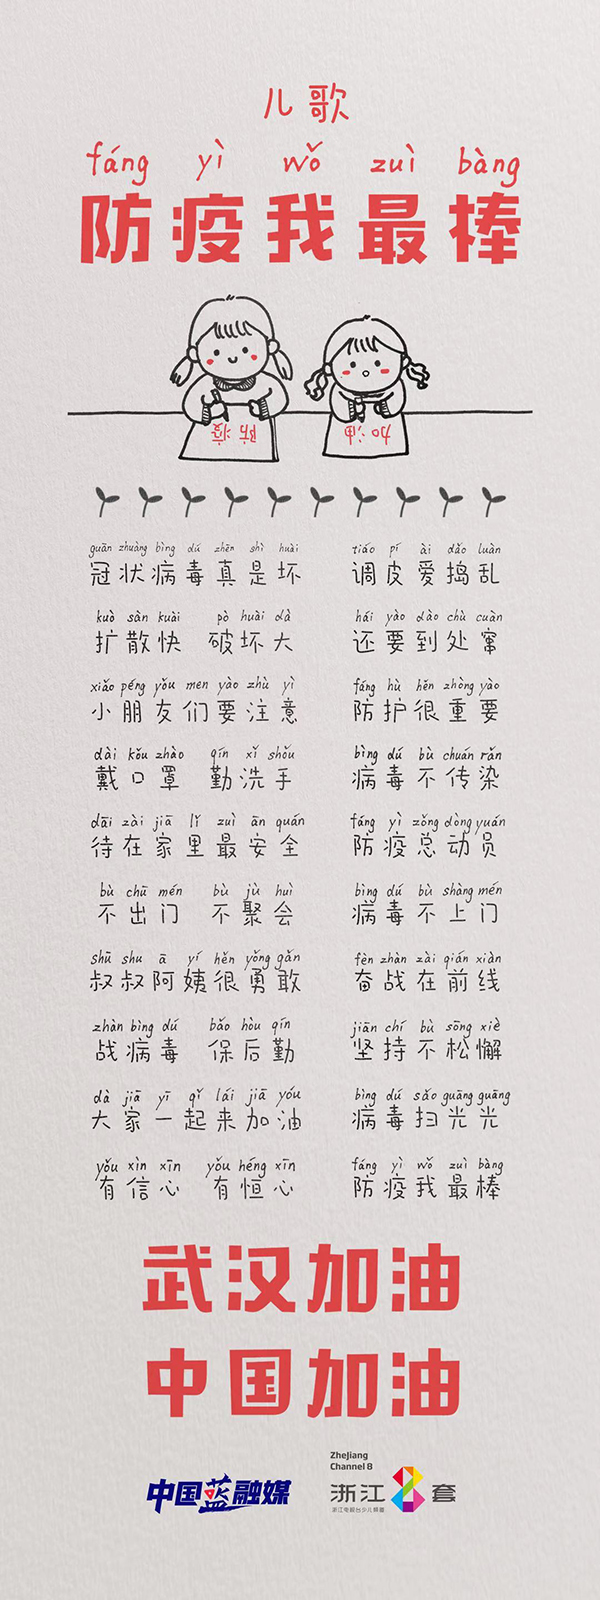 儿歌
fáng yì wǒ zuì bàng
防疫我最棒
防疫
加油
guān zhuàng bìng dú zhēn shì huài tiáo pí ài dǎo luàn
冠状病毒真是坏 调皮爱捣乱
kuò sàn kuài pò huài dà hái yào dào chù cuàn
扩散快 破坏大 还要到处窜
xiǎo péng yǒu men yào zhù yì fáng hù hěn zhòng yào
小朋友们要注意 防护很重要
dài kǒu zhào qín xǐ shǒu bìng dú bù chuán rǎn
戴口罩 勤洗手 病毒不传染
dāi zài jiā lǐ zuì ān quán fáng yì zǒng dòng yuán
待在家里最安全 防疫总动员
bù chū mén bù jù huì bìng dú bù shàng mén
不出门 不聚会 病毒不上门
shū shu ā yí hěn yǒng gǎn fèn zhàn zài qián xiàn
叔叔阿姨很勇敢 奋战在前线
zhàn bìng dú bǎo hòu qín jiān chí bù sōng xiè
战病毒 保后勤 坚持不松懈
dà jiā yī qǐ lái jiā yóu bìng dú sǎo guāng guāng
大家一起来加油 病毒扫光光
yǒu xìn xīn yǒu héng xīn fáng yì wǒ zuì bàng
有信心 有恒心 防疫我最棒
武汉加油
中国加油
中国蓝融媒
ZheJiang
Channel 8
浙江8套
浙江电视台少儿频道